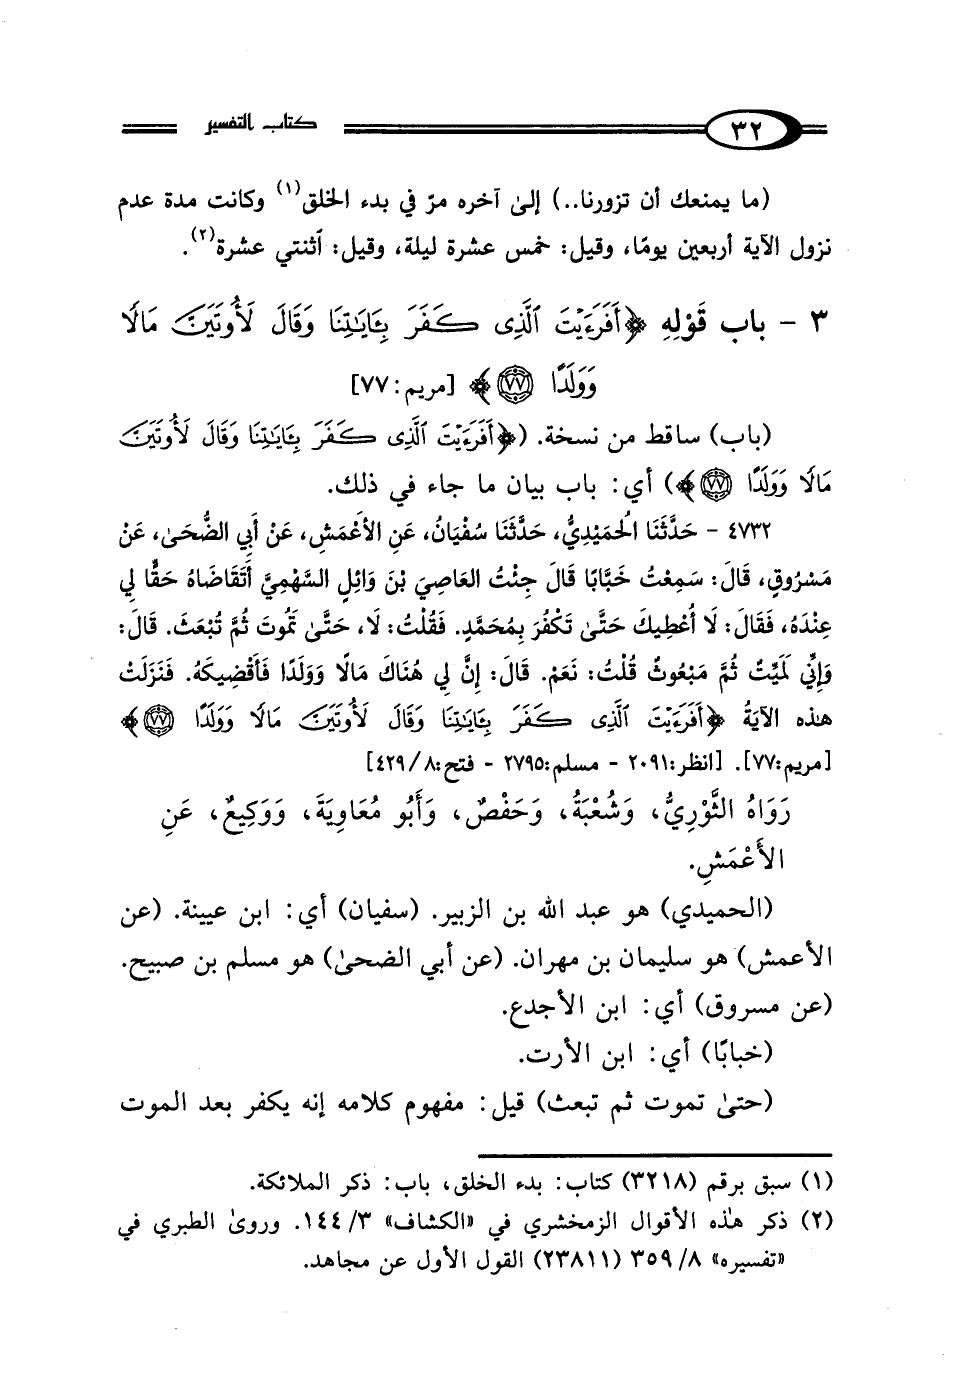 ٣٢ كتاب التفسير
(ما يمنعك أن تزورنا..) إلىٰ آخره مرّ في بدء الخلق(١) وكانت مدة عدم
نزول الآية أربعين يومًا، وقيل: خمس عشرة ليلة، وقيل: ٱثنتي عشرة(٢).
٣ - باب قَوْلِهِ ﴿أَفَرَءَيْتَ ٱلَّذِى كَفَرَ بِـَٔايَـٰتِنَا وَقَالَ لَأُوتَيَنَّ مَالًا
وَوَلَدًا ٧٧﴾ [مريم: ٧٧]
(باب) ساقط من نسخة. (﴿أَفَرَءَيْتَ ٱلَّذِى كَفَرَ بِـَٔايَـٰتِنَا وَقَالَ لَأُوتَيَنَّ
مَالًا وَوَلَدًا ٧٧﴾) أي: باب بيان ما جاء في ذلك.
٤٧٣٢ - حَدَّثَنَا الحُمَيْدِيُّ، حَدَّثَنَا سُفْيَانُ، عَنِ الأَعْمَشِ، عَنْ أَبِي الضُّحَىٰ، عَنْ
مَسْرُوقٍ، قَالَ: سَمِعْتُ خَبَّابًا قَالَ جِئْتُ العَاصِيَ بْنَ وَائِلٍ السَّهْمِيَّ أَتَقَاضَاهُ حَقًّا لِي
عِنْدَهُ، فَقَالَ: لَا أُعْطِيكَ حَتَّىٰ تَكْفُرَ بِمُحَمَّدٍ. فَقُلْتُ: لَا، حَتَّىٰ تَمُوتَ ثُمَّ تُبْعَثَ. قَالَ:
وَإِنِّي لَمَيِّتٌ ثُمَّ مَبْعُوثٌ قُلْتُ: نَعَمْ. قَالَ: إِنَّ لِي هُنَاكَ مَالًا وَوَلَدًا فَأَقْضِيكَهُ. فَنَزَلَتْ
هٰذِه الآيَةُ ﴿أَفَرَءَيْتَ ٱلَّذِى كَفَرَ بِـَٔايَـٰتِنَا وَقَالَ لَأُوتَيَنَّ مَالًا وَوَلَدًا ٧٧﴾
[مريم:٧٧]. [انظر:٢٠٩١ - مسلم:٢٧٩٥ - فتح:٨/ ٤٢٩]
رَوَاهُ الثَّوْرِيُّ، وَشُعْبَةُ، وَحَفْصٌ، وَأَبُو مُعَاوِيَةَ، وَوَكِيعٌ، عَنِ
الأَعْمَشِ.
(الحميدي) هو عبد الله بن الزبير. (سفيان) أي: ابن عيينة. (عن
الأعمش) هو سليمان بن مهران. (عن أبي الضحىٰ) هو مسلم بن صبيح.
(عن مسروق) أي: ابن الأجدع.
(خبابًا) أي: ابن الأرت.
(حتىٰ تموت ثم تبعث) قيل: مفهوم كلامه إنه يكفر بعد الموت
(١) سبق برقم (٣٢١٨) كتاب: بدء الخلق، باب: ذكر الملائكة.
(٢) ذكر هذه الأقوال الزمخشري في «الكشاف» ٣/ ١٤٤. وروىٰ الطبري في
«تفسيره» ٨/ ٣٥٩ (٢٣٨١١) القول الأول عن مجاهد.